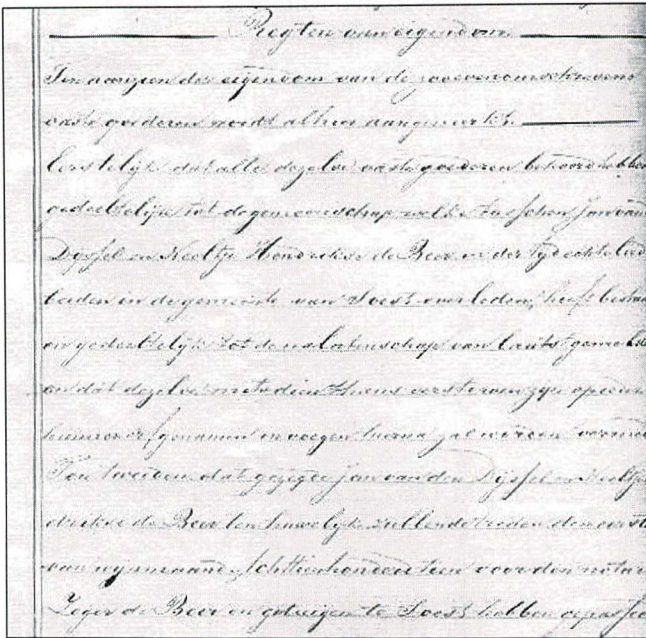 Regten van eigendom
Ten aanzien der eigendom van de zooevenomschrevene
vaste goederen wordt alhier aangemerkt.
Eerstelijk dat alle dezelve vaste goederen behoord hebben
gedeeltelijk tot de gemeenschap welke tusschen Jan van
Dijssel en Neeltje Hendrikse de Beer in der tyd echteli
beiden in de gemeente van Soest overleden, heeft bestaa
en gedeeltelijk tot de nalatenschap van laatstgemelde
en dat dezelve met dien thans verstorven zyn op
genamen in voegen hierna zal worden vermel
Ten tweeden, dat gezegde Jan van den Dijssel en Neeltje
drikse de Beer ten huwelyk zullende treden den eerst
van wynmaand Achttienhonderd tien voor den notar
Zeger de Beer en getuigen te Soest hebben gepasseer